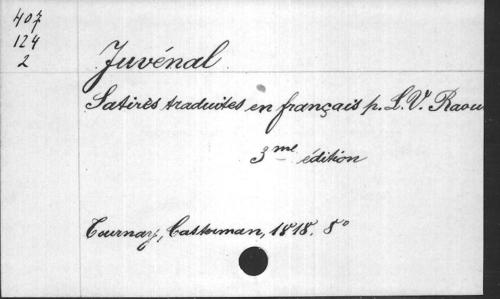 407
124
2
Juvénal.
Satires traduites en français p. L. V. Raou
3me édition
Tournay, Casterman, 1818. 8°